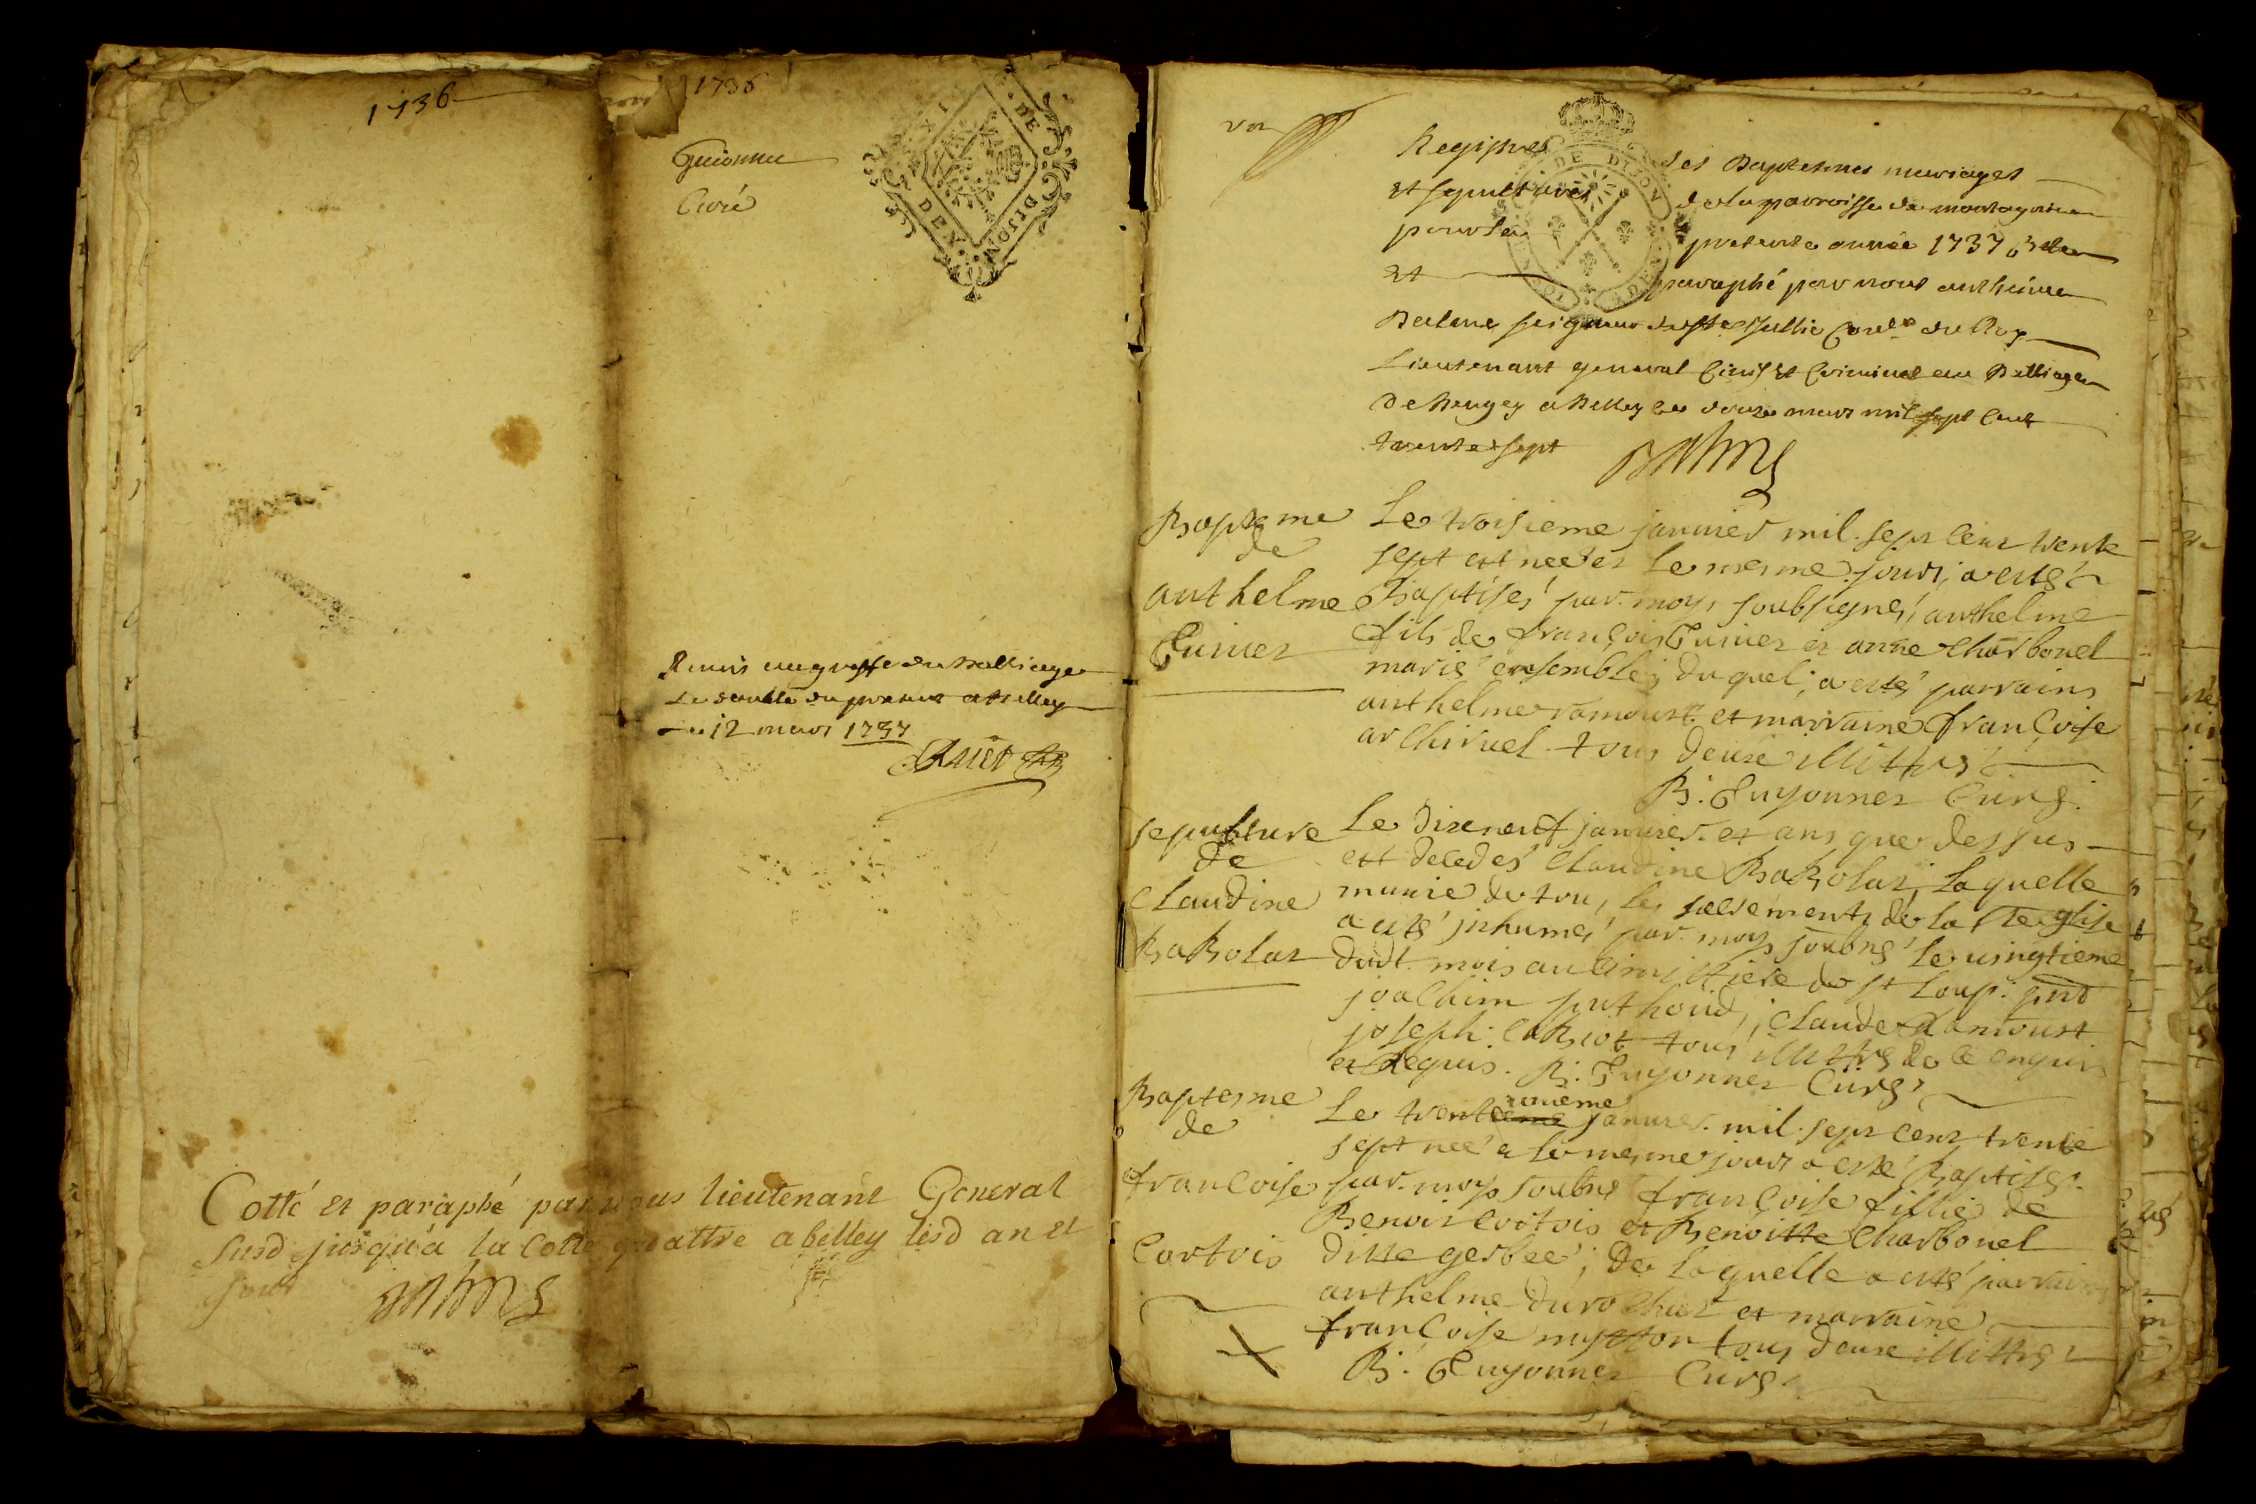 1736
1736
Guionnet
Curé
DE DIJON
Remis au greffe du Balliage
le double du present a Belley
ce 12 mars 1737
Cotté et paraphé par nous lieutenant General
susd jusqu'a la Cotte quattre a belley lesd an et
jour
Balme
von
Registres des Baptesmes mariages
et sepultures de la parroisse de
pour la presente année 1737
et paraphé par nous anthelme
Balme seigneur de Ste Jullie Conelr du Roy
Lieutenant general Civil et Criminel au Balliage
De Beugey a Belley ce douze mars mil sept cent
trente sept
Balme
DE DIJON
Baptesme
de
anthelme
Guinet
Le troisieme janvier mil sept cent trente
sept est née et le mesme jour, a esté
Baptisé par moy soubsigné, anthelme
fils de françois Guinet et anne Charbonel
marié ensemble; duquel, a esté parrains
anthelme ramoust et marraine françoise
archirel tous deux illittrés
B. Guyonnet Curé.
sepulture
de
Claudine
BaBolat
Le disenewf janvier et ans que dessus
est decedés Claudine BaBolat, laquelle
munie de tous les sacrements de la Ste eglise
a esté inhumé par moy soubné le vingtieme
dudt mois au cimittiere de st Loup. pnt
joachim puthoud, Claude Ramoust
joseph CaBiot tous illittrés de ce enquis
et Requis. B. Guyonnet Curé
Baptesme
de
françoise
Cortois
unieme
Le trentieme janvier mil sept cent trente
sept née et le mesme jour a esté Baptisée
par moy soubné françoise fillie de
Benoit Cortois et Benoitte Charbonel
ditte gerbee; De laquelle a esté parrain
anthelme durochat et marraine
françoise mytton tous deux illittrés
B. Guyonnet Curé